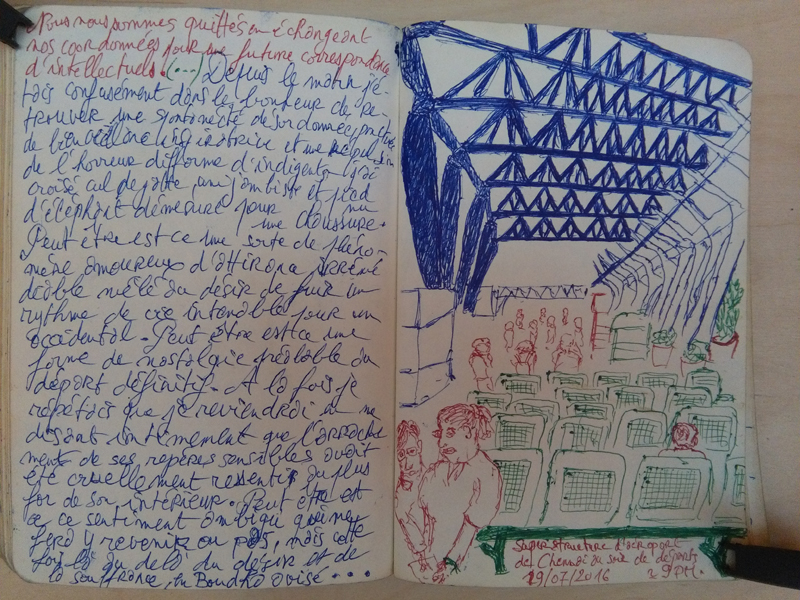 Nous nous sommes quittés en échangeant
nos coordonnées pour une future correspondance
d'intellectuels. (...) Depuis le matin j'é-
tais confusément dans le bonheur de re-
trouver une spontanéité désordonnée,
de bienveillance et une
de l'horreur difforme d'indigents
croisé cul de jatte, unijambiste et pied
d'éléphant démesuré pour
une chaussure.
Peut être est ce une sorte de phéno-
mène amoureux d'attirance irrémé
diable mêlé du désir de fuir un
rythme de vie intenable pour un
occidental. Peut être est ce une
forme de nostalgie préalable du
départ définitif. A la fois je
répétais que je reviendrai en me
disant intimement que l'arrache
ment de ses repères sensibles avait
été cruellement ressenti au plus
for de son intérieur. Peut être est
ce ce sentiment ambigu qui me
fera y revenir ou pas, mais cette
fois là au delà du désir et de
la souffrance, en Bouddha avisé...
Superstructure d'aéroport
de Chennai au soir de départ,
19/07/2016 9 PM.